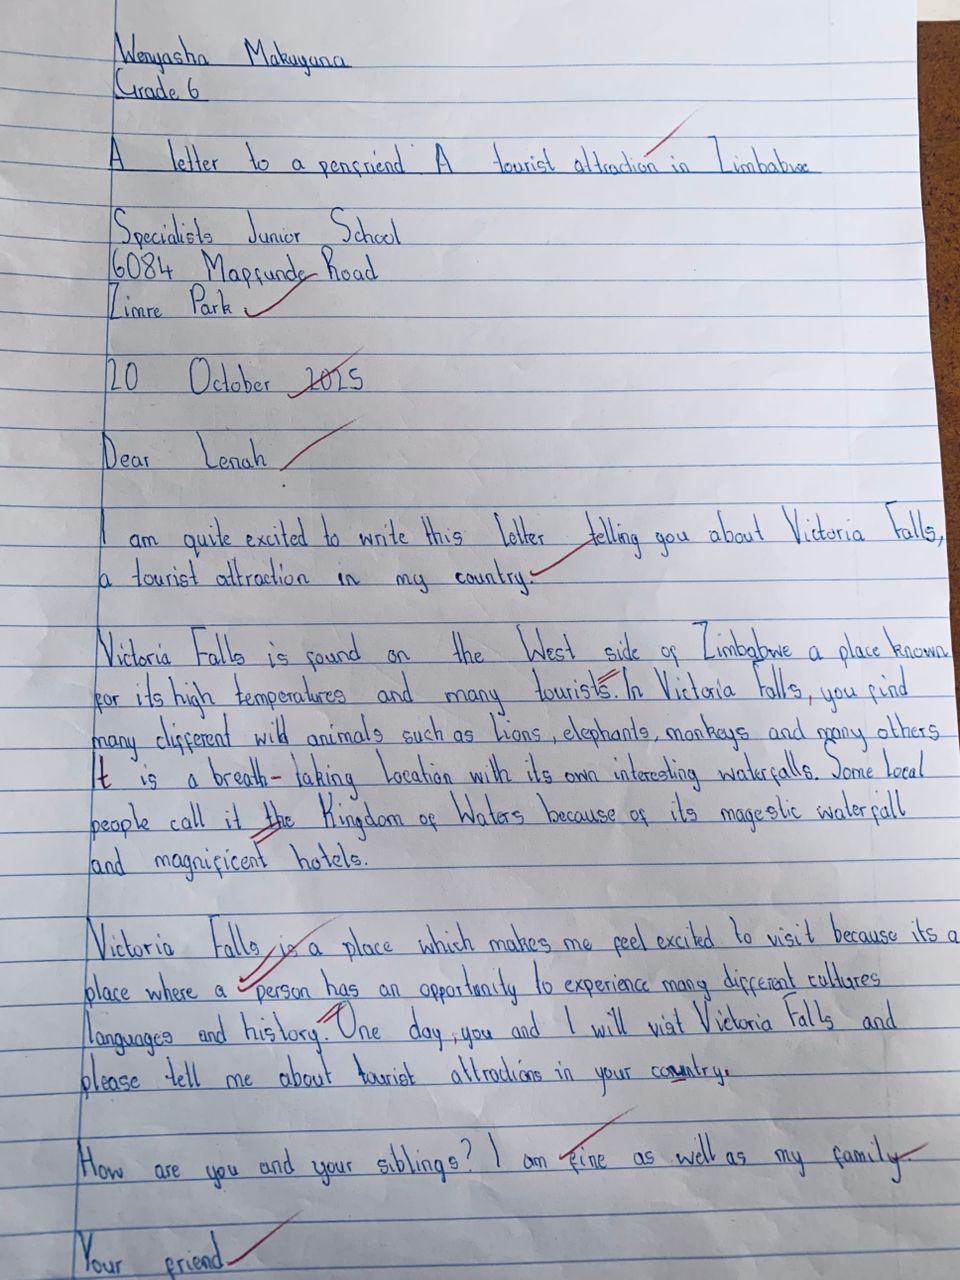 Wenyasha Makuyana
Grade 6
A letter to a penfriend A tourist attraction in Zimbabwe
Specialists Junior School
6084 Mapfunde Road
Zimre Park
20 October 2025
Dear Lenah
I am quite excited to write this letter telling you about Victoria Falls,
a tourist attraction in my country.
Victoria Falls is found on the West side of Zimbabwe a place known
for its high temperatures and many tourists. In Victoria Falls, you find
many different wild animals such as lions, elephants, monkeys and many others
It is a breath-taking location with its own interesting waterfalls. Some local
people call it the Kingdom of Waters because of its magestic waterfall
and magnificent hotels.
Victoria Falls, is a place which makes me feel excited to visit because its a
place where a person has an opportunity to experience many different cultures
languages and history. One day, you and I will visit Victoria Falls and
please tell me about tourist attractions in your country.
How are you and your siblings? I am fine as well as my family.
Your friend